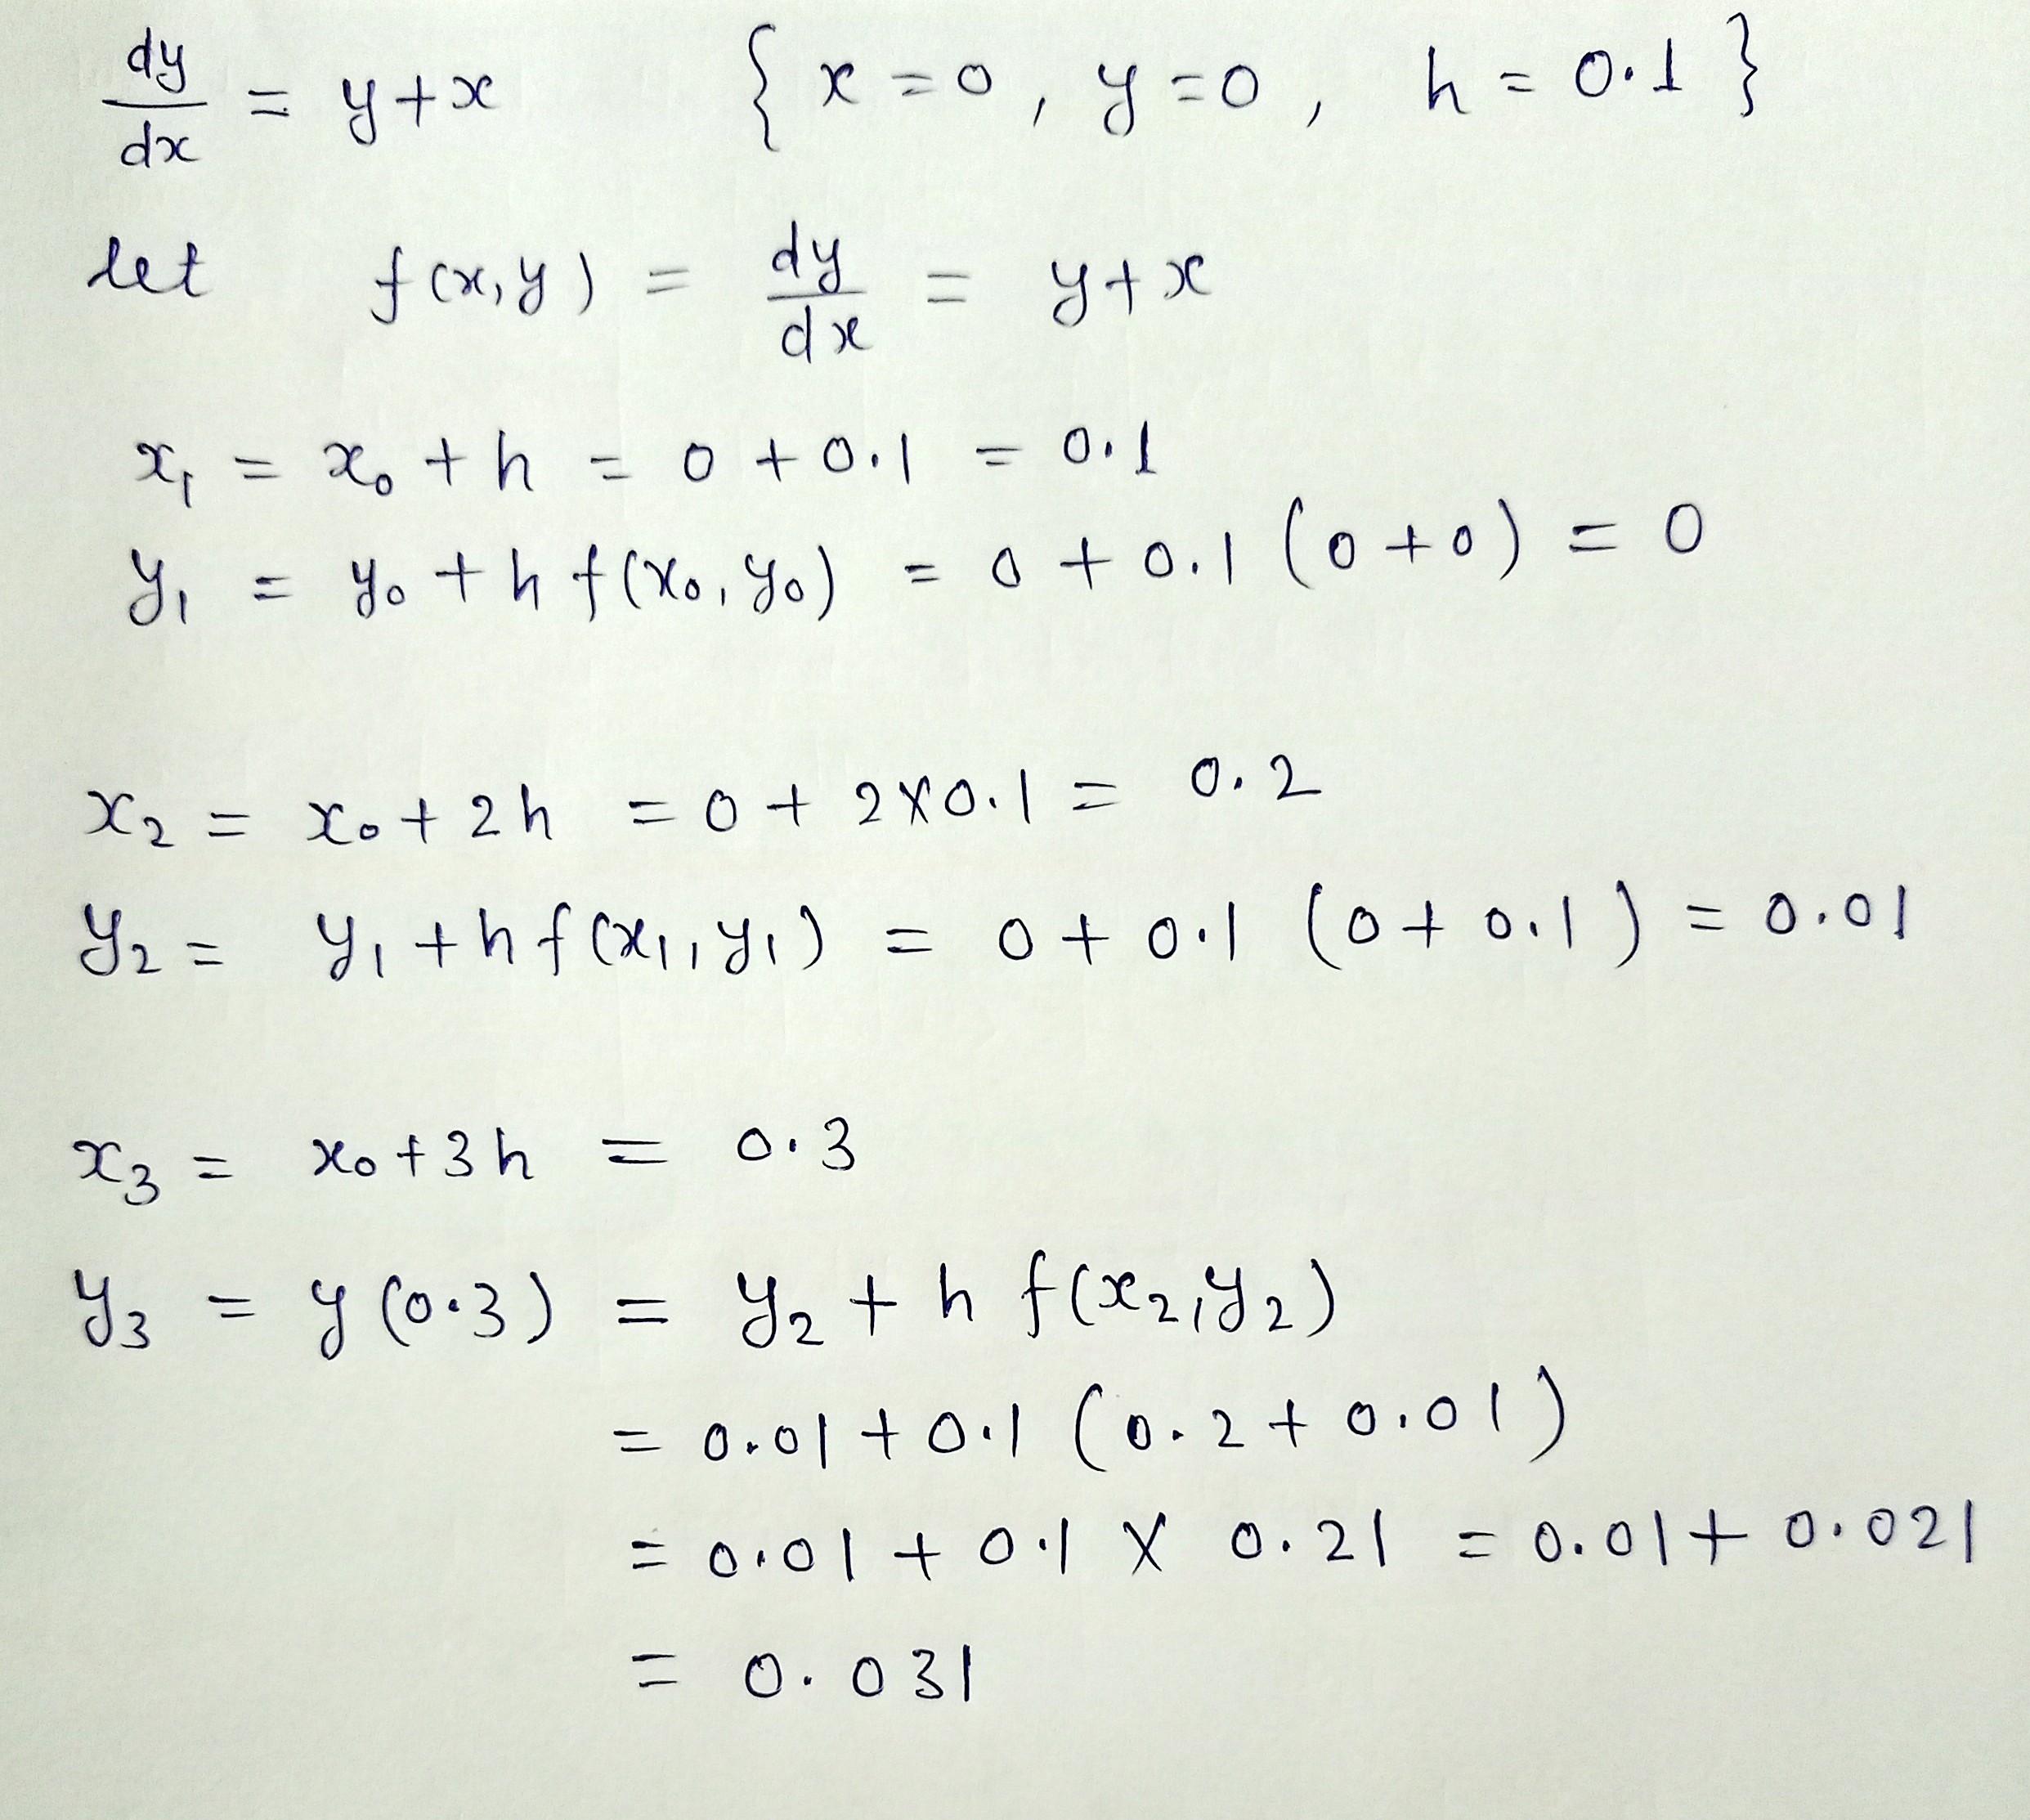 dy/dx = y+x { x=0, y=0, h=0.1 }
let f(x,y) = dy/dx = y+x
x₁ = x₀ + h = 0 + 0.1 = 0.1
y₁ = y₀ + h f(x₀, y₀) = 0 + 0.1 (0+0) = 0
x₂ = x₀ + 2h = 0 + 2×0.1 = 0.2
y₂ = y₁ + h f(x₁, y₁) = 0 + 0.1 (0 + 0.1) = 0.01
x₃ = x₀ + 3h = 0.3
y₃ = y(0.3) = y₂ + h f(x₂, y₂)
= 0.01 + 0.1 (0.2 + 0.01)
= 0.01 + 0.1 × 0.21 = 0.01 + 0.021
= 0.031